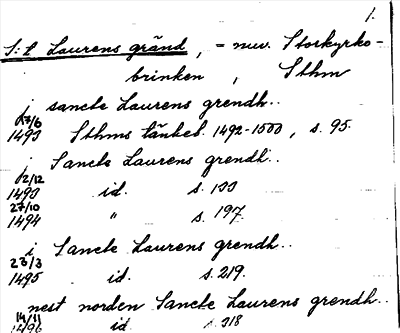 1.
S:t Laurens gränd, = nuv. Storkyrko-
brinken, Sthm
i sancte Laurens grendh..
17/6 1493 Sthms tänkeb. 1492-1500, s. 95.
i Sancte Laurens grendh..
2/12 1493 id. s. 133
27/10 1494 " s. 197.
i Sancte Laurens grendh..
23/3 1495 id. s. 219.
nest norden Sancte Laurens grendh..
14/11 1496 id. s. 318